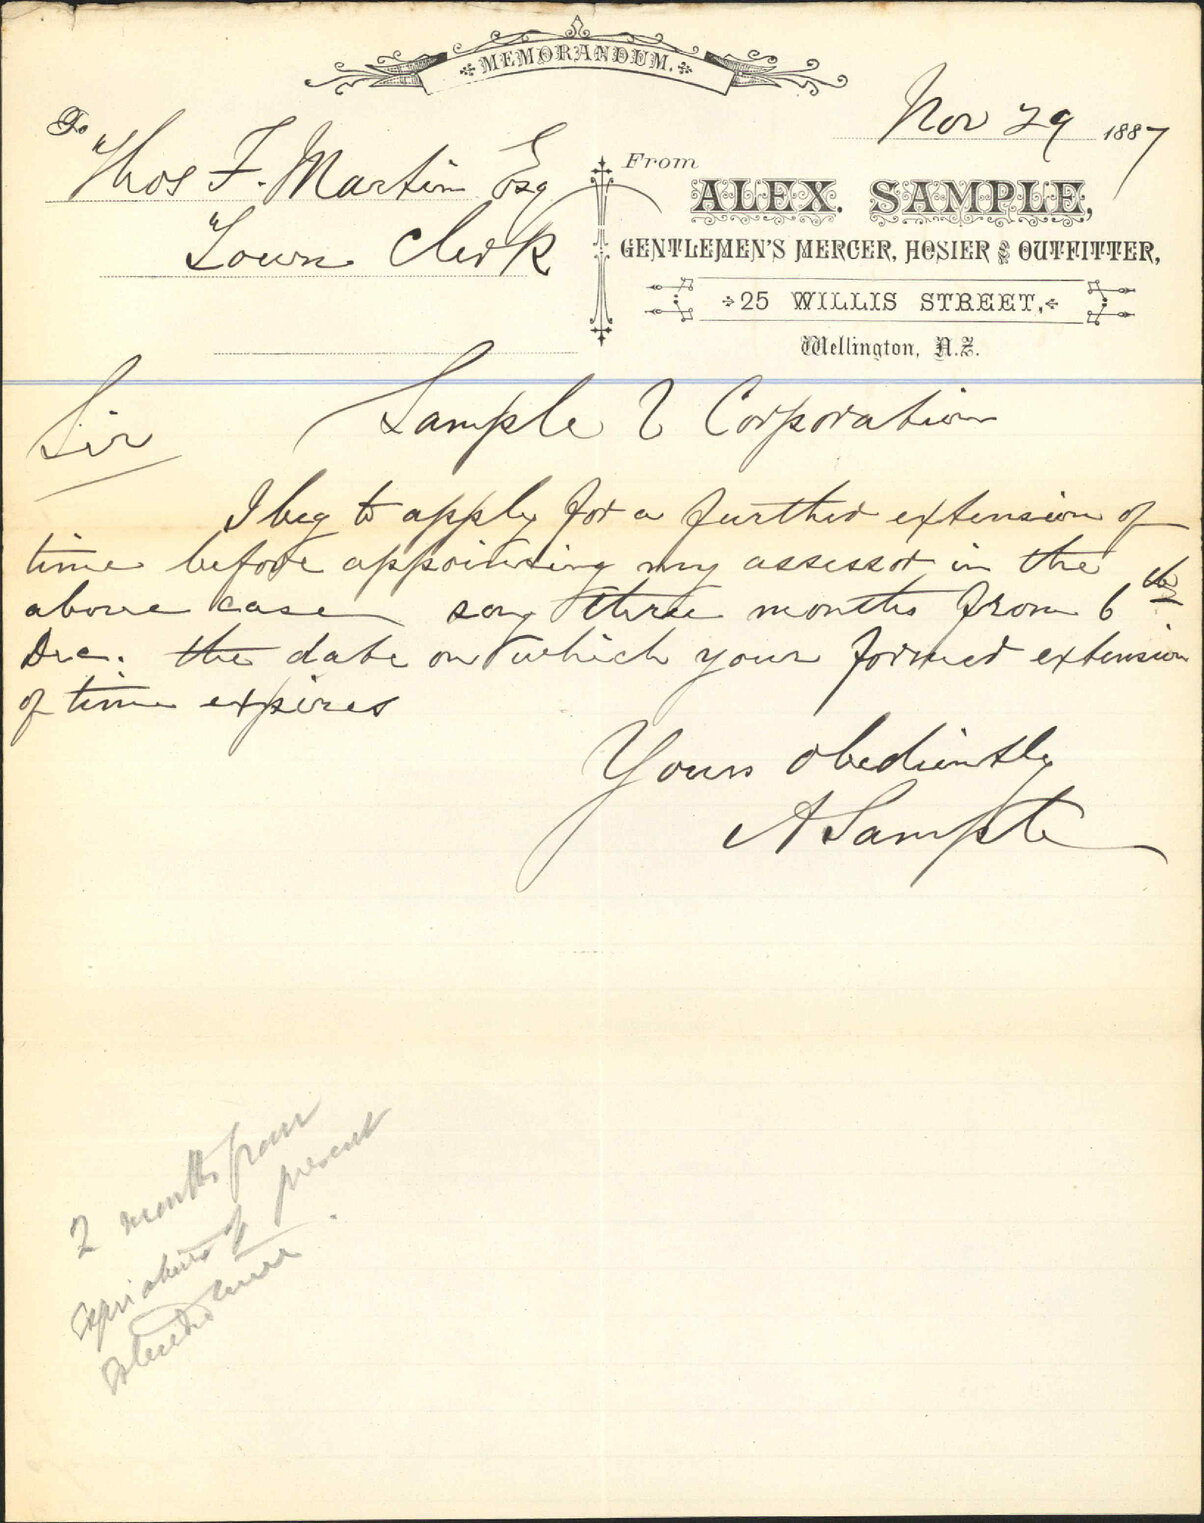 MEMORANDUM.
Nov 29 1887
To
Thos F. Martin Esq
Town Clerk
From
ALEX. SAMPLE,
GENTLEMEN'S MERCER, HOSIER & OUTFITTER,
25 WILLIS STREET,
Wellington, N.Z.
Sir
Sample v Corporation
I beg to apply for a further extension of
time before appointing my assessor in the
above case say three months from 6th
Dec. the date on which your former extension
of time expires
Yours obediently
A Sample
2 months from
expiration of present
extended time.